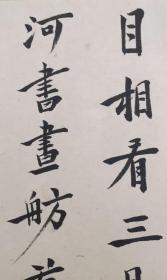 目相看三
河書畫舫